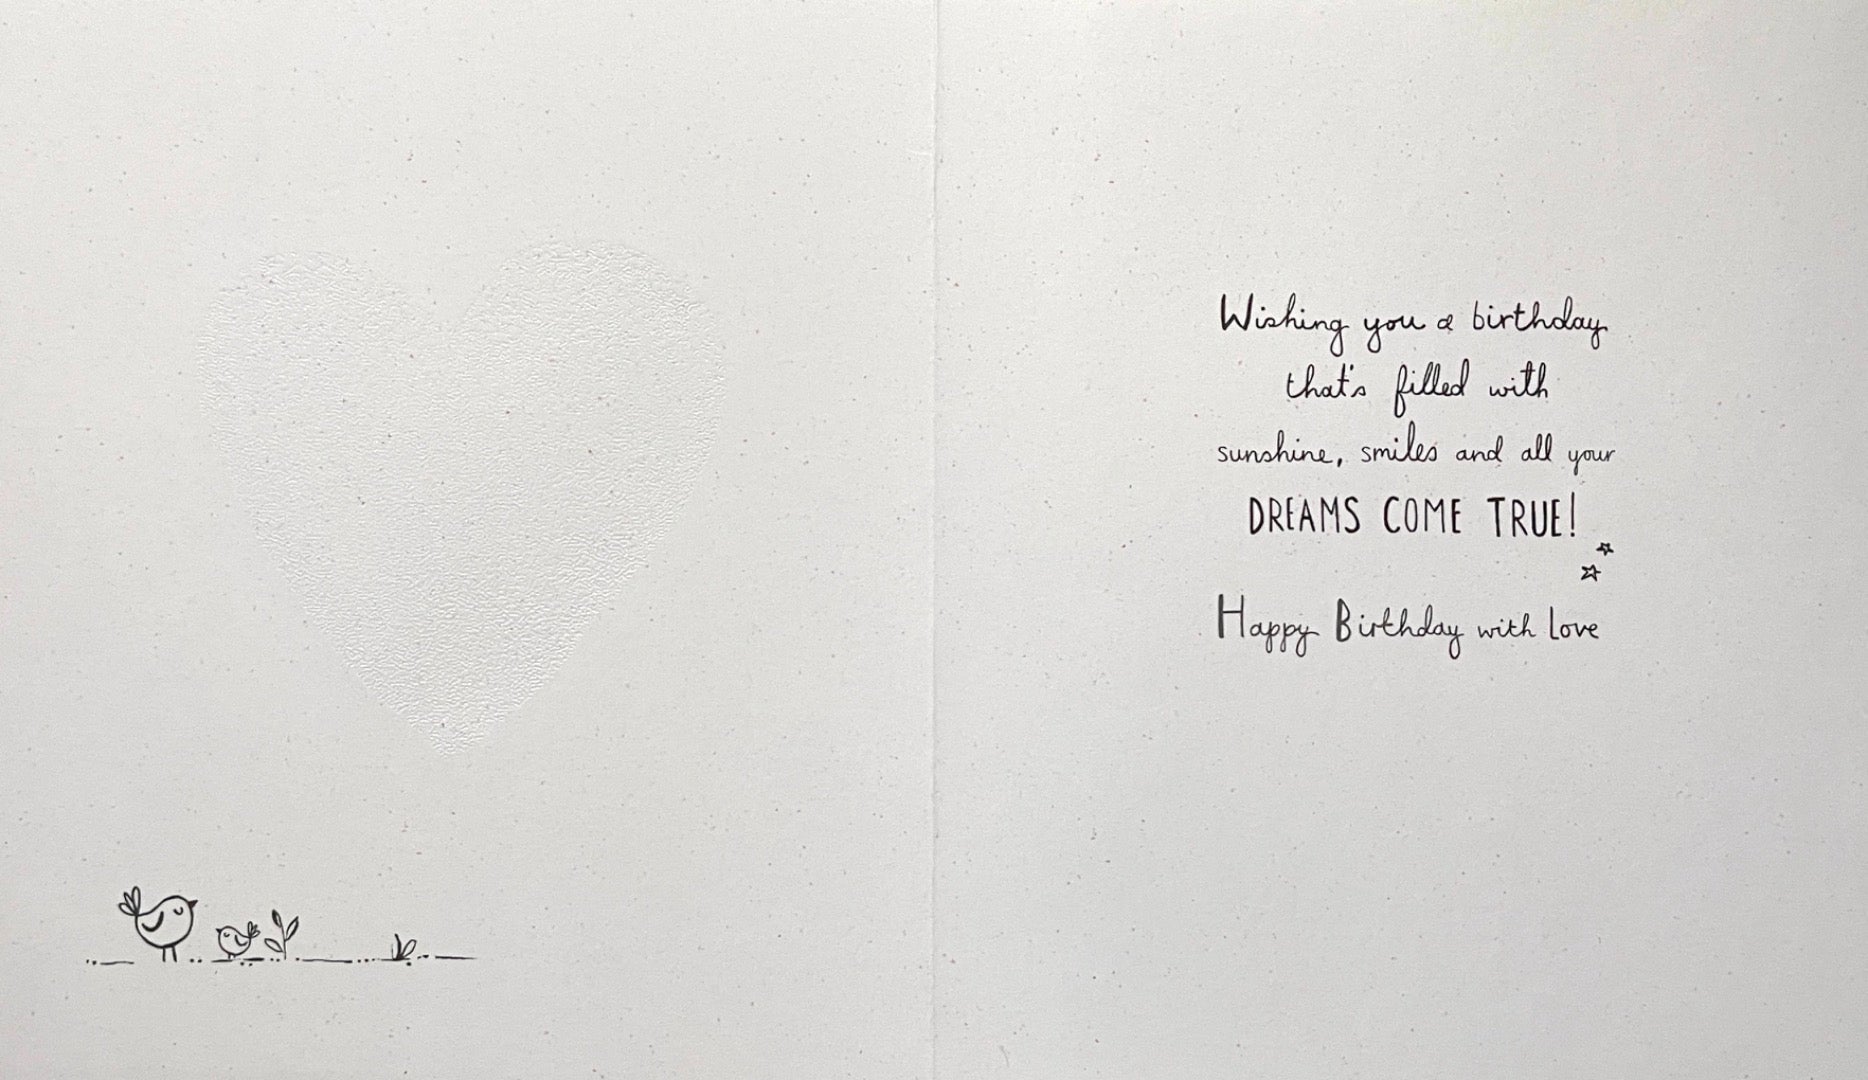 Wishing you a birthday
that's filled with
sunshine, smiles and all your
DREAMS COME TRUE!
Happy Birthday with Love